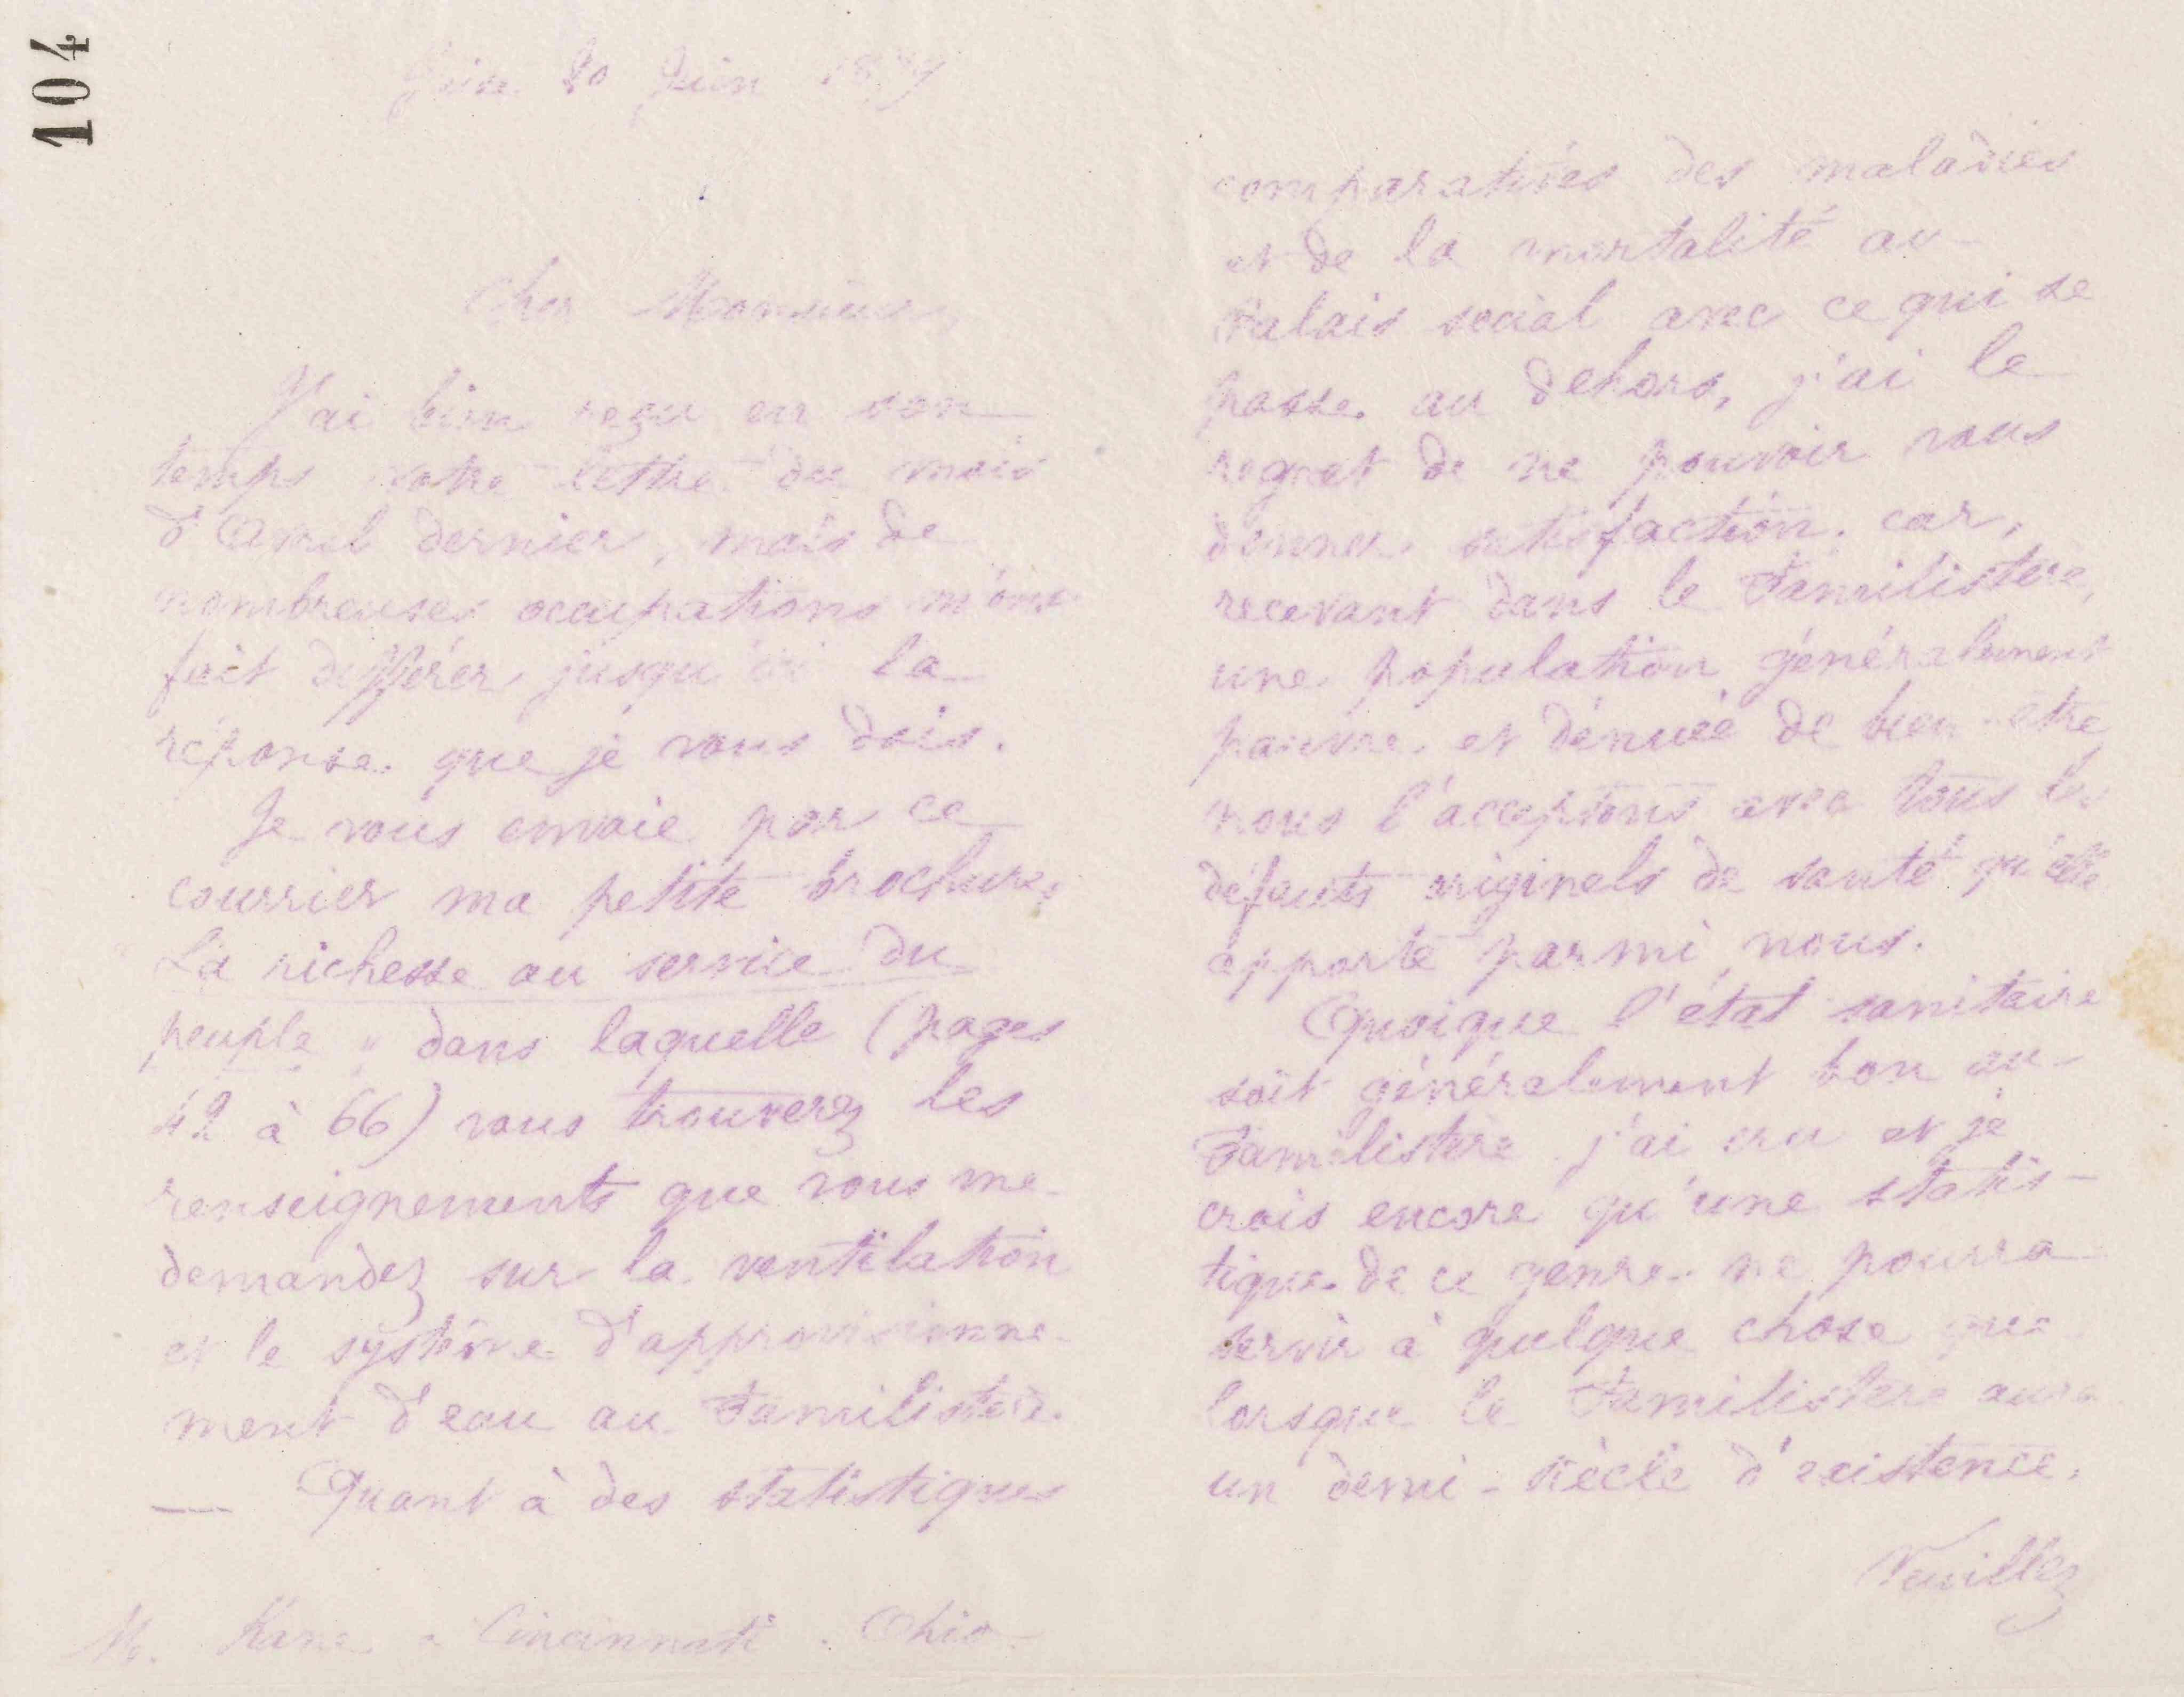 104
Guise 20 Juin 1879
Cher Monsieur,
J'ai bien reçu en son
temps votre lettre du mois
d'Avril dernier, mais de
nombreuses occupations m'ont
fait différer jusqu'ici la
réponse que je vous dois.
Je vous envoie par ce
courrier ma petite brochure,
"La richesse au service du
peuple" dans laquelle (pages
42 à 66) vous trouverez les
renseignements que vous me
demandez sur la ventilation
et le système d'approvisionne-
ment d'eau au Familistère.
— Quant à des statistiques
M. Kane - Cincinnati - Ohio
comparatives des maladies
et de la mortalité au
Palais social avec ce qui se
passe au dehors, j'ai le
regret de ne pouvoir vous
donner satisfaction. car,
recevant dans le Familistère,
une population généralement
pauvre et dénuée de bien-être
nous l'acceptons avec tous les
défauts originels de santé qu'elle
apporte parmi nous.
Quoique l'état sanitaire
soit généralement bon au
Familistère j'ai cru et je
crois encore qu'une statis-
tique de ce genre ne pourra
servir à quelque chose que
lorsque le Familistère aura
un demi-siècle d'existence.
Veuillez